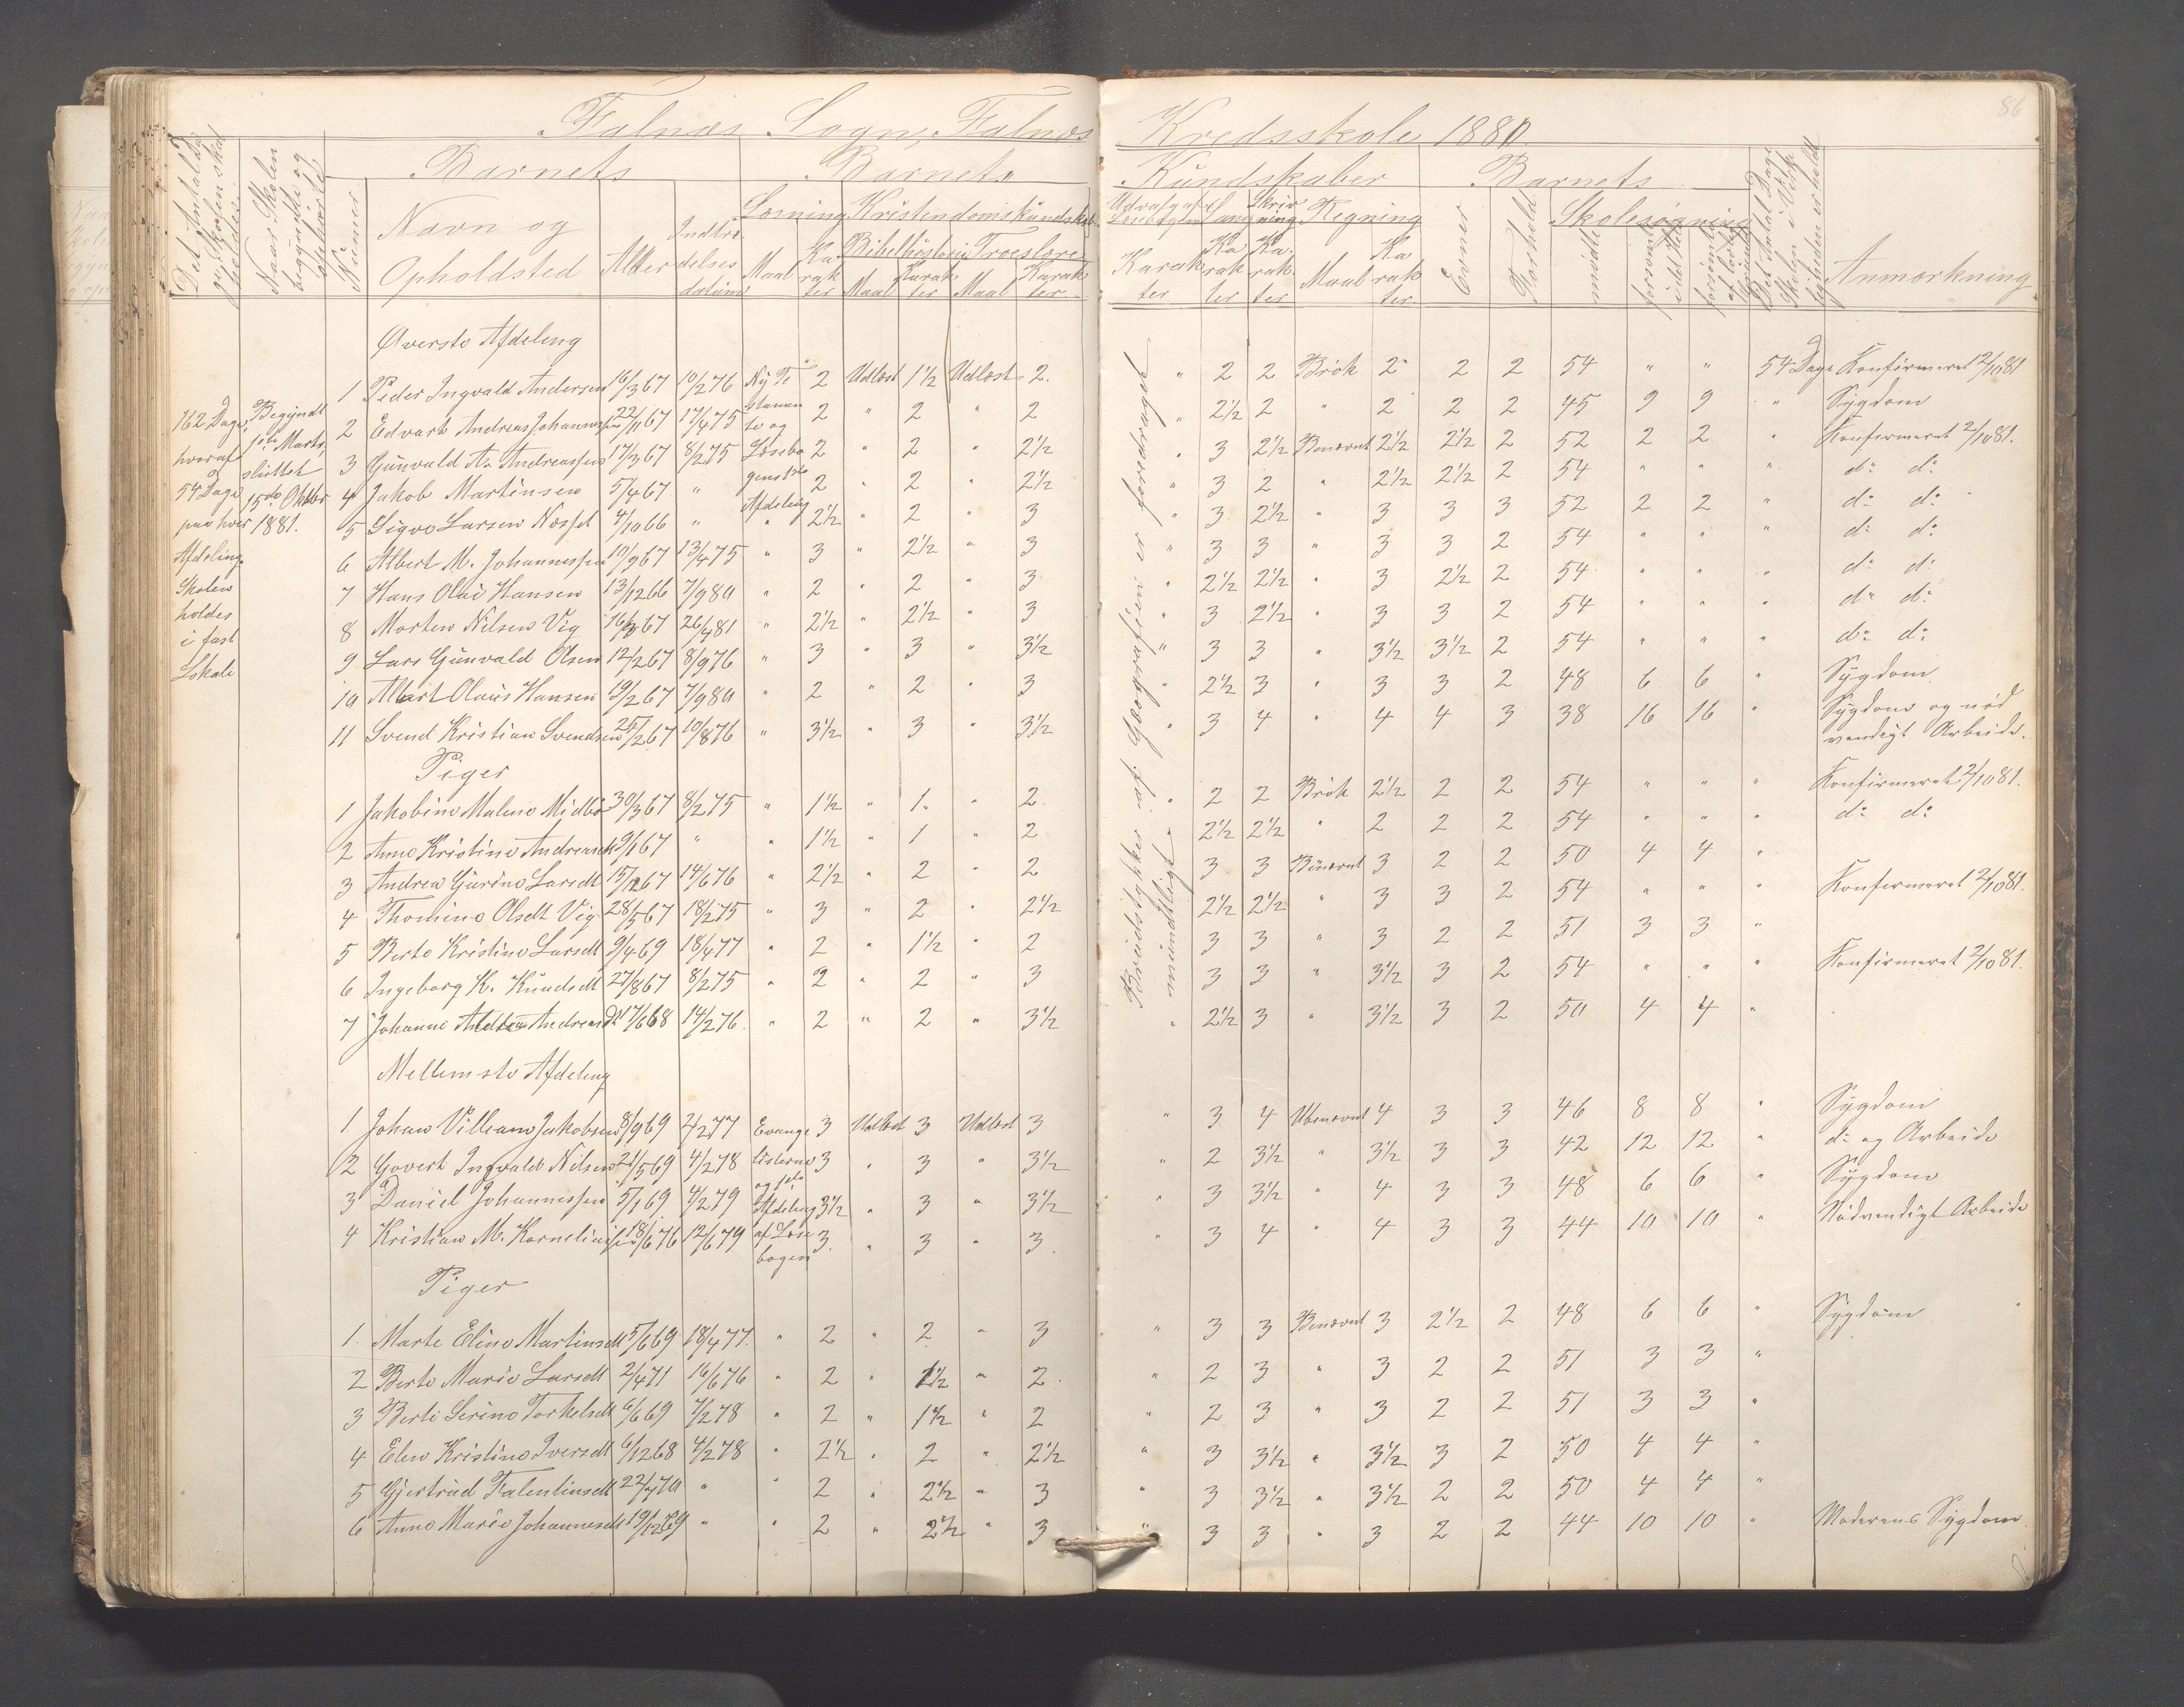 86
Falnæs Sogn, Falnæs Kredsskole 1880.
Det Antal Dage Skolen skal holdes
Naar Skolen begyndte og sluttede
Numer
Barnets
Navn og Opholdsted
Alder
Indtrædelses datum
Barnets Kundskaber
Læsning Kristendomskundskab
Maal Karakter
Bibelhistorie Troeslære
Maal Karakter Maal Karakter
Udvalg af Læsebogen Karakter
Sang Karakter
Skrivning Karakter
Regning Maal Karakter
Barnets
Evner Forhold
Skolesøgning
mødte forsømte i det Hele
Anmærkning
162 Dage, hvoraf 54 Dage paa hver Afdeling. Skolen holdes i fast Lokale
Begyndt 1ste Marts, sluttet 15de Oktbr 1881.
Øverste Afdeling
1 Peder Ingvald Andersen 16/3 67 10/2 76 Ny Te 2 Udlæst 1½ Udlæst 2. " 2 2 Brøk 2 2 2 54 " " 54 Dage Konfirmeret 2/10 81
2 Edvart Andreas Johannessen 22/11 67 17/4 75 stamente og 2 " 2 " 2 " 2½ 2 " 2 2 2 45 9 9 " Sygdom
3 Gunvald A. Andreassen 17/3 67 8/2 75 Læsebo 2 " 2 " 2½ " 3 2½ Benævnt 2½ 2½ 2 52 2 2 " Konfirmeret 2/10 81.
4 Jakob Martinsen 5/4 67 " gens 3die 2 " 2 " 2½ " 3 2 " 2½ 2½ 2 54 " " " do do
5 Sigvo Larsen Næsset 4/10 66 " Afdeling 2½ " 2 " 3 " 3 2½ " 3 3 3 52 2 2 " do do
6 Albert M. Johannessen 10/9 67 13/4 75 " 3 " 2½ " 3 " 3 3 " 3 3 2 54 " " " do do
7 Hans Olai Hansen 13/12 66 7/9 80 " 2 " 2 " 3 " 2½ 2½ " 3 2½ 2 54 " " " do do
8 Morten Nilsen Vig 16/3 67 26/4 81 " 2½ " 2½ " 3 " 3 2½ " 3 3 2 54 " " " do do
9 Lars Gunvald Olsen 12/2 67 8/9 76 " 3 " 3 " 3½ " 3 3 " 3½ 3½ 2 54 " " " do do
10 Albert Olaus Hansen 19/2 67 7/9 80 " 2 " 2 " 3 " 2½ 3 " 3 3 2 48 6 6 " Sygdom
11 Svend Kristian Svendsen 25/2 67 10/8 76 " 3½ " 3 " 3½ " 3 4 " 4 4 3 38 16 16 " Sygdom og nød
vendigt Arbeide.
Piger
1 Jakobine Malene Midbø 30/3 67 8/2 75 " 1½ " 1. " 2. " 2 2 Brøk 2½ 2 2 54 " " " Konfirmeret 2/10 81.
2 Anne Kristine Andreasdt 9/1 67 " " 1½ " 1 " 2 " 2½ 2½ " 2 2 2 54 " " " do do
3 Andrea Gurine Larsdt 15/12 67 14/6 76 " 2½ " 2 " 2 " 3 3 Benævnt 3 2 2 50 4 4 "
4 Thomine Olsdt Vig 28/5 67 18/2 75 " 3 " 2 " 2½ " 2½ 2½ " 3 3 2 54 " " " Konfirmeret 2/10 81.
5 Berte Kristine Larsdt 9/4 69 18/4 77 " 2 " 1½ " 2 " 3 3 " 3 2 2 51 3 3 "
6 Ingeborg K. Knudsdt 27/8 67 8/2 75 " 2 " 2 " 3 " 3 3 " 3½ 3 2 54 " " " Konfirmeret 2/10 81.
7 Johanne Andreasdt 17/6 68 14/2 76. " 2 " 2 " 3½ " 2½ 3 " 3½ 3 2 50 4 4 "
Karakterer i mundtlig
Mellemste Afdeling
1 Johan Villiam Jakobsen 8/9 69 2/2 77 Evange 3 Udlæst 3 Udlæst 3 " 3 4 Ubenævnt 4 3 3 46 8 8 " Sygdom
2 Govert Ingvald Nilsen 21/5 69 4/2 78 listerne 3 " 3 " 3½ " 2 3½ " 3½ 3 3 42 12 12 " do og Arbeide
3 Daniel Johannessen 5/1 69 4/2 79 og 1ste Afdeling 3½ " 3 " 3½ " 3 3½ " 4 3 3 48 6 6 " Sygdom
4 Kristian M. Korneliussen 18/6 76 12/6 79 af Læsebogen 3. " 3 " 3. " 3 4 " 4 3 3 44 10 10 " Nødvendigt Arbeide
Piger
1. Marte Eline Martinsdt 5/6 69 18/4 77. " 2 " 2 " 3 " 3 3 Benævnt 3 2½ 2 48 6 6 " Sygdom
2 Berte Marie Larsdt 2/4 71 16/6 76 " 2 " 1½ " 2. " 2 3 " 3 2 2 51 3 3 "
3 Berte Serine Torkelsdt 6/6 69 7/2 78 " 2 " 1½ " 2 " 2 3 " 3 2 2 51 3 3 "
4 Elen Kristine Iversdt 6/12 68 4/2 78 " 2½ " 2 " 2½ " 3 3½ " 3½ 3 2 50 4 4 "
5 Gjertrud Falentinsdt 22/7 70 " " 2 " 2½ " 3 " 3 3½ " 3½ 2 2 50 4 4 "
6 Anne Marie Johannesdt 19/12 69 " " 2 " 2½ " 3 " 3 3 " 3 2 2 44 10 10 " Moderens Sygdom